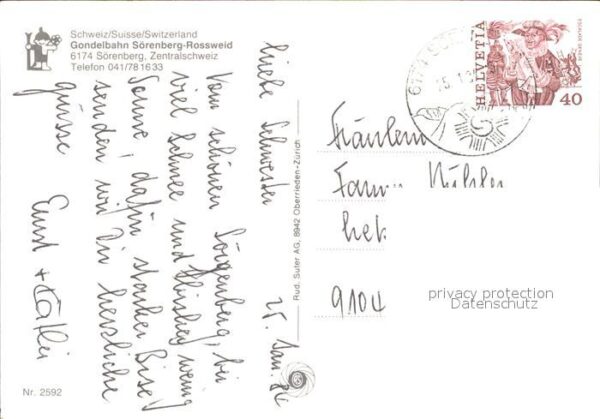 Schweiz/Suisse/Switzerland
Gondelbahn Sörenberg-Rossweid
6174 Sörenberg, Zentralschweiz
Telefon 041/78 16 33
25. Jan. 86
Liebe Schwester
Vom schönen Sörenberg, bei
viel Schnee und wenig
Sonne, dafür starker Bise
senden wir Dir herzliche
grüsse
Ernst +
Nr. 2592
Rud. Suter AG, 8942 Oberrieden-Zürich
6174
HELVETIA
40
Fräulein
9104
privacy protection
Datenschutz